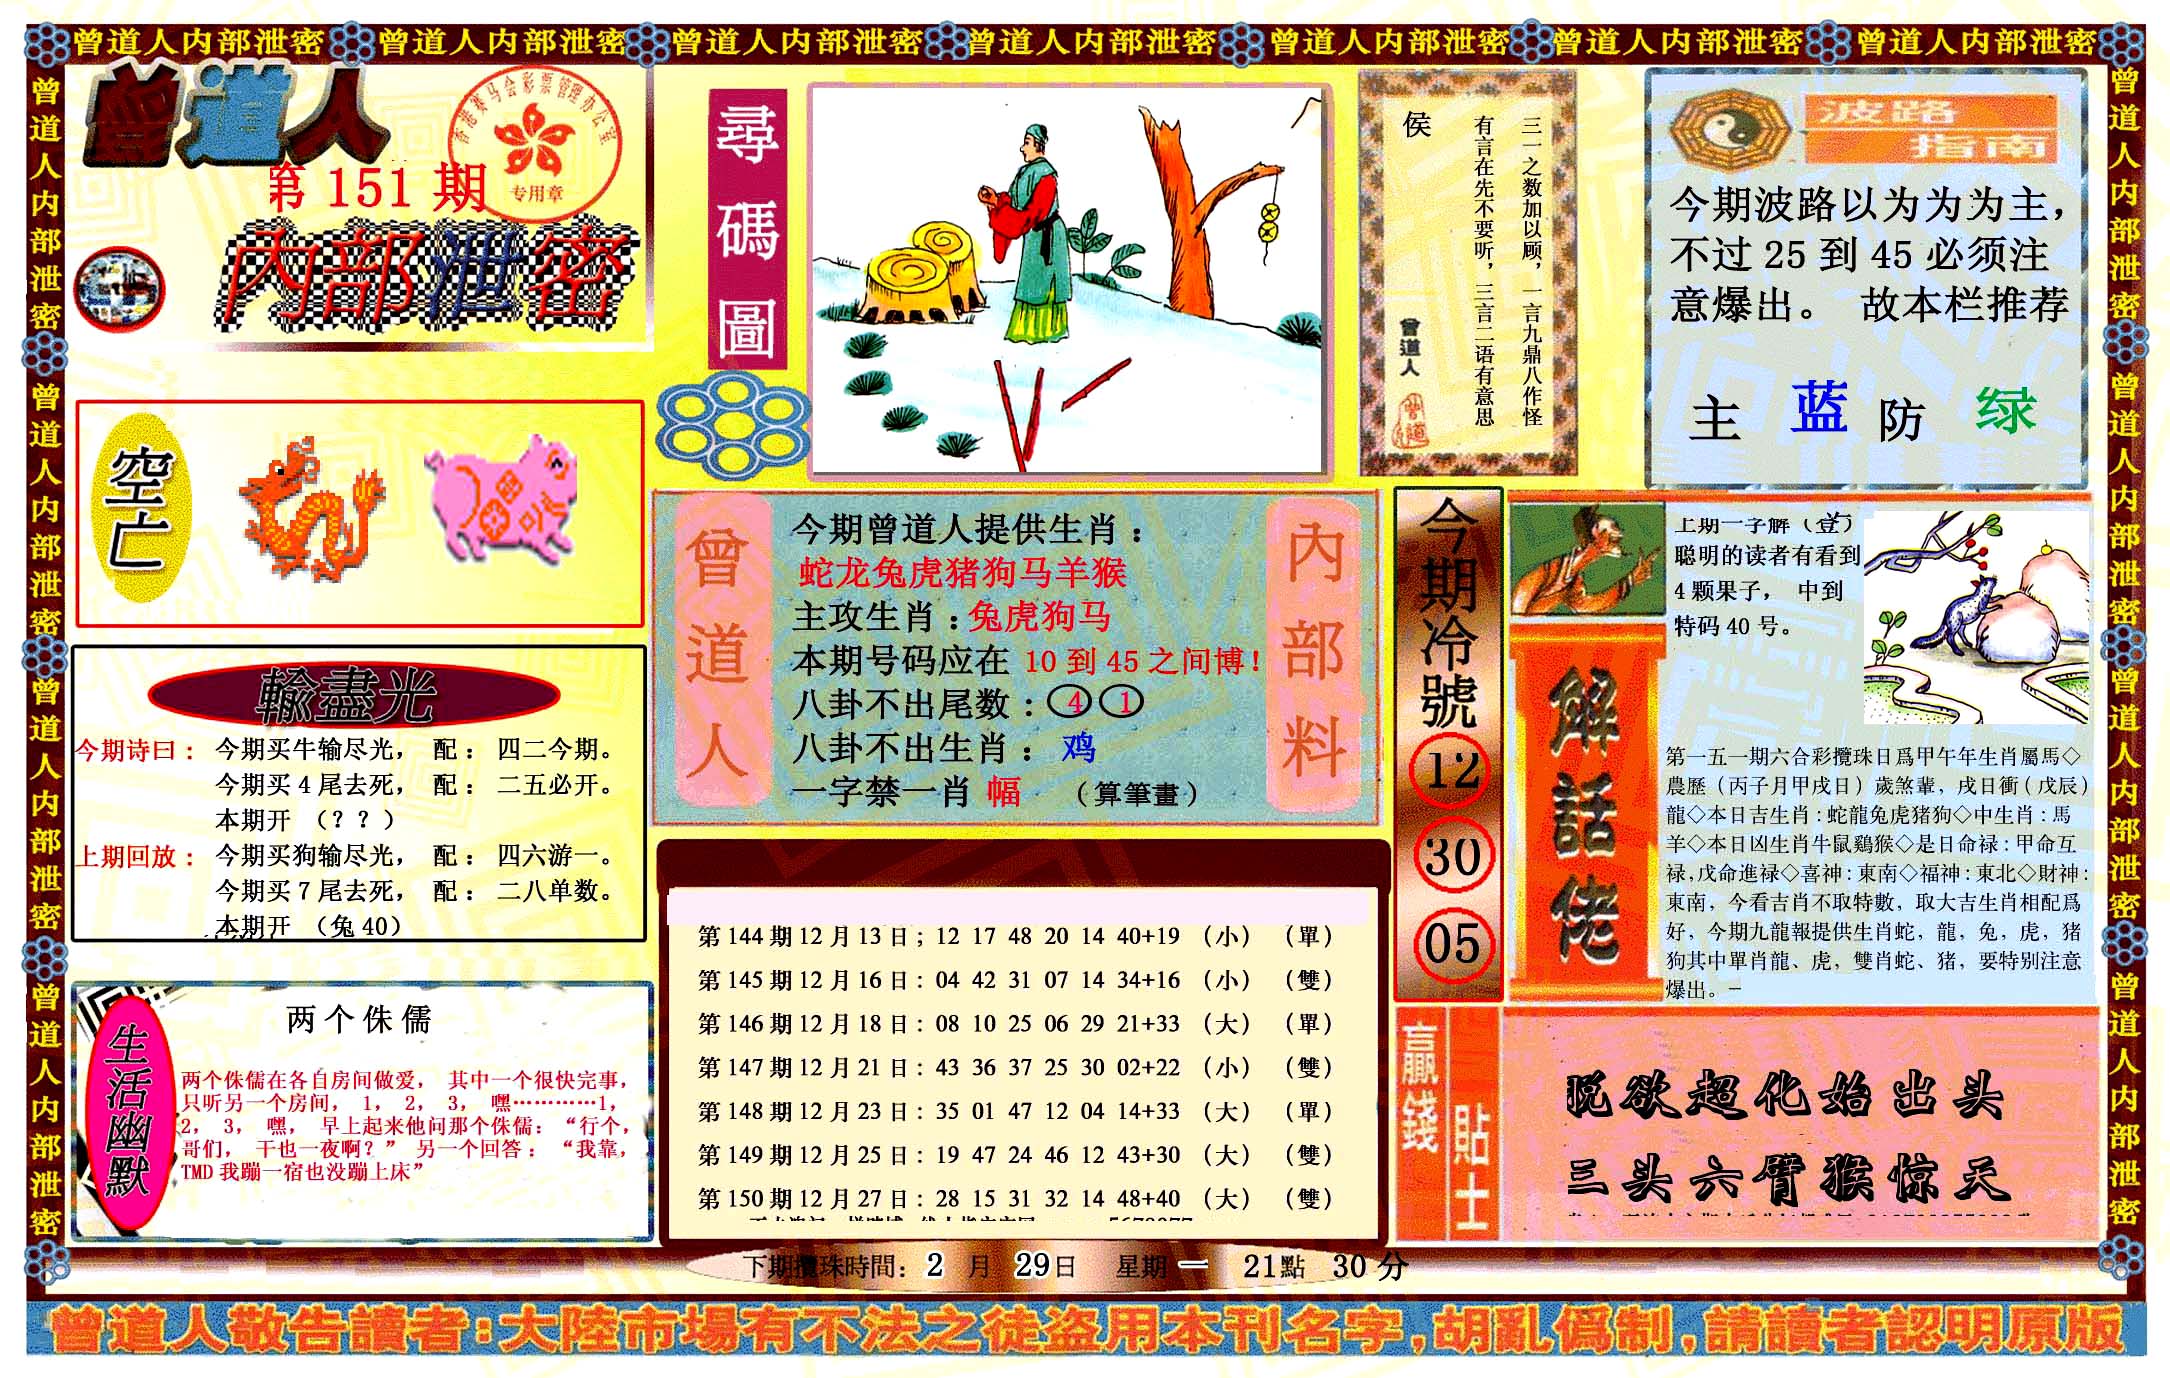 曾道人内部泄密 曾道人内部泄密 曾道人内部泄密 曾道人内部泄密 曾道人内部泄密 曾道人内部泄密 曾道人内部泄密
曾道人内部泄密 曾道人内部泄密 曾道人内部泄密 曾道人内部泄密
曾道人
香港赛马会彩票管理办公室
专用章
第 151 期
內部泄密
空亡
輸盡光
今期诗曰： 今期买牛输尽光， 配： 四二今期。
今期买 4 尾去死， 配： 二五必开。
本期开 （？？）
上期回放： 今期买狗输尽光， 配： 四六游一。
今期买 7 尾去死， 配： 二八单数。
本期开 （兔 40）
生活幽默
两个侏儒
两个侏儒在各自房间做爱， 其中一个很快完事，
只听另一个房间， 1， 2， 3， 嘿…………1，
2， 3， 嘿， 早上起来他问那个侏儒：“行个，
哥们， 干也一夜啊？” 另一个回答：“我靠，
TMD 我蹦一宿也没蹦上床”
尋碼圖
三一之数加以顾，一言九鼎八作怪
有言在先不要听，三言二语有意思
侯
曾道人
波路
指南
今期波路以为为为主，
不过 25 到 45 必须注
意爆出。 故本栏推荐
主 蓝 防 绿
曾道人
內部料
今期曾道人提供生肖：
蛇龙兔虎猪狗马羊猴
主攻生肖：兔虎狗马
本期号码应在 10 到 45 之间博！
八卦不出尾数：4 1
八卦不出生肖： 鸡
一字禁一肖 幅 （算筆畫）
今期冷號
12
30
05
第 144 期 12 月 13 日；12 17 48 20 14 40+19 （小） （單）
第 145 期 12 月 16 日：04 42 31 07 14 34+16 （小） （雙）
第 146 期 12 月 18 日：08 10 25 06 29 21+33 （大） （單）
第 147 期 12 月 21 日：43 36 37 25 30 02+22 （小） （雙）
第 148 期 12 月 23 日：35 01 47 12 04 14+33 （大） （單）
第 149 期 12 月 25 日：19 47 24 46 12 43+30 （大） （雙）
第 150 期 12 月 27 日：28 15 31 32 14 48+40 （大） （雙）
上期一字解（登）
聪明的读者有看到
4 颗果子， 中到
特码 40 号。
解話佬
第一五一期六合彩攪珠日爲甲午年生肖屬馬◇
農歷（丙子月甲戌日）歲煞輩，戌日衝（戊辰）
龍◇本日吉生肖：蛇龍兔虎猪狗◇中生肖：馬
羊◇本日凶生肖牛鼠鷄猴◇是日命禄：甲命互
禄，戊命進禄◇喜神：東南◇福神：東北◇財神：
東南，今看吉肖不取特數，取大吉生肖相配爲
好，今期九龍報提供生肖蛇，龍，兔，虎，猪
狗其中單肖龍、虎，雙肖蛇、猪，要特别注意
爆出。-
贏錢
貼士
脱欲超化始出头
三头六臂猴惊天
下期攪珠時間： 2 月 29日 星期 一 21點 30 分
曾道人敬告讀者：大陸市場有不法之徒盗用本刊名字，胡亂僞制，請讀者認明原版